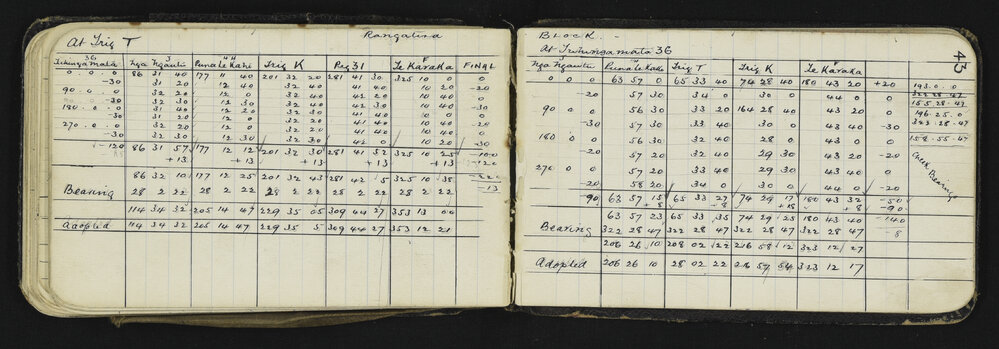 At Trig T
Rangatira
36 3 44 F
Tuhingamata Nga Ngautu Punatekahi Trig K Peg 31 Te Karaka FINAL
0 . 0 . 0 86 31 40 177 11 40 201 32 20 281 41 30 325 10 0 0
-30 31 40 12 40 32 40 41 40 10 20 -20
90 . 0 . 0 32 20 12 0 32 40 42 20 10 40 0
-30 32 30 12 30 32 40 42 30 10 40 -30
180 . 0 . 0 31 40 12 20 32 30 41 20 10 40 0
-30 31 20 12 0 32 20 41 40 10 40 -20
270 . 0 . 0 32 20 12 0 32 20 42 20 10 40 0
-30 32 30 12 30 32 30 41 40 10 20 -30
-120 86 31 57 177 12 12 201 32 30 281 41 52 325 10 25 -100
+13 +13 +13 +13 +13 -120
86 32 10 177 12 25 201 32 43 281 42 5 325 10 38 -220
Bearing 28 2 22 28 2 22 28 2 22 28 2 22 28 2 22 -13
114 34 32 205 14 47 229 35 05 309 44 27 353 13 00
Adopted 114 34 32 205 14 47 229 35 5 309 44 27 353 12 21
BLOCK.
43
At Tuhingamata 36
Nga Ngautu Punatekahi Trig T Trig K Te Karaka
0 0 0 63 57 0 65 33 40 74 28 40 180 43 20 +20 193.0.0
-20 57 30 34 0 30 0 44 0 0 322.28.47
90 0 0 56 30 33 20 164 28 40 43 20 0 155.28.47
196.25.0
-30 57 30 33 40 30 0 43 40 -30 323.28.47
180 0 0 56 30 32 40 28 0 43 40 0 158.55.47
-20 57 20 33 40 29 30 43 20 -20
270 0 0 57 20 33 40 29 30 43 40 0
-20 58 20 34 0 30 0 44 0 -20
Check Bearings
-90 63 57 15 65 33 27 74 29 17 180 43 32 -50
+8 +8 +8 +8 -90
63 57 23 65 33 35 74 29 25 180 43 40 -140
Bearing 322 28 47 322 28 47 322 28 47 322 28 47 -8
206 26 10 208 02 22 216 58 12 323 12 27
Adopted 206 26 10 28 02 22 216 57 54 323 12 17